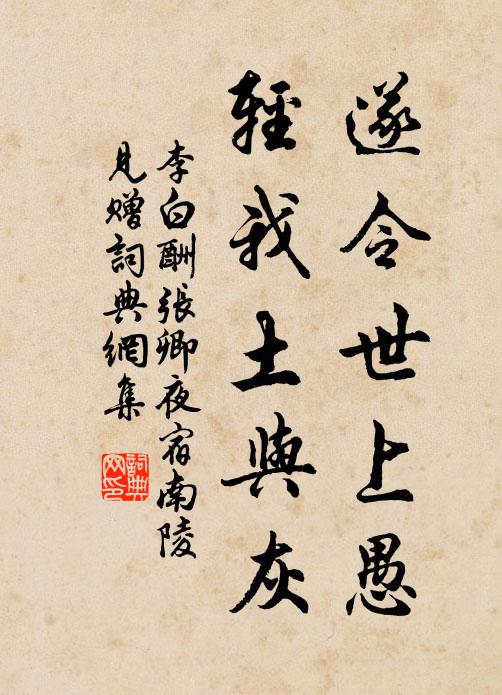 遂令世上愚
輕我土與灰
李白酬張卿夜宿南陵
見贈詞典網集
詞典網印